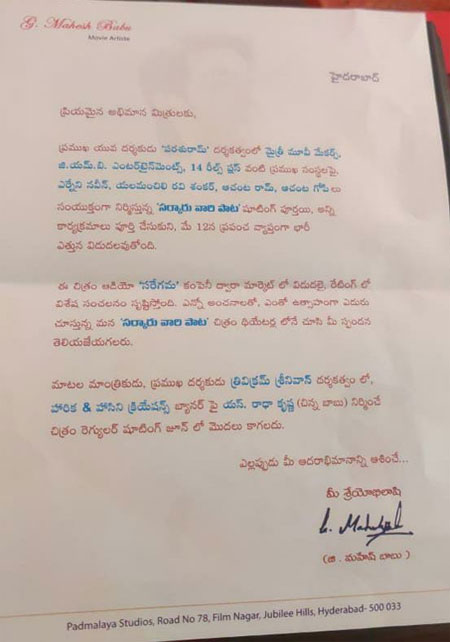 G. Mahesh Babu
Movie Artiste
హైదరాబాద్
ప్రియమైన అభిమాన మిత్రులకు,
ప్రముఖ యువ దర్శకుడు 'పరశురామ్' దర్శకత్వంలో మైత్రీ మూవీ మేకర్స్,
జి.యమ్.బి. ఎంటర్‌టైన్‌మెంట్స్, 14 రీల్స్ ప్లస్ వంటి ప్రముఖ సంస్థలపై,
ఎర్నేని నవీన్, యలమంచిలి రవి శంకర్, ఆచంట రామ్, ఆచంట గోపీలు
సంయుక్తంగా నిర్మిస్తున్న 'సర్కారు వారి పాట' షూటింగ్ పూర్తయి, అన్ని
కార్యక్రమాలు పూర్తి చేసుకుని, మే 12న ప్రపంచ వ్యాప్తంగా భారీ
ఎత్తున విడుదలవుతోంది.
ఈ చిత్రం ఆడియో 'సరేగమ' కంపెనీ ద్వారా మార్కెట్ లో విడుదలై, రేటింగ్ లో
విశేష సంచలనం సృష్టిస్తోంది. ఎన్నో అంచనాలతో, ఎంతో ఉత్సాహంగా ఎదురు
చూస్తున్న మన 'సర్కారు వారి పాట' చిత్రం థియేటర్ల లోనే చూసి మీ స్పందన
తెలియజేయగలరు.
మాటల మాంత్రికుడు, ప్రముఖ దర్శకుడు త్రివిక్రమ్ శ్రీనివాస్ దర్శకత్వం లో,
హారిక & హాసిని క్రియేషన్స్ బ్యానర్ పై యస్. రాధా కృష్ణ (చిన్న బాబు) నిర్మించే
చిత్రం రెగ్యులర్ షూటింగ్ జూన్ లో మొదలు కాగలదు.
ఎల్లప్పుడు మీ ఆదరాభిమానాన్ని ఆశించే...
మీ శ్రేయోభిలాషి
(జి. మహేష్ బాబు)
Padmalaya Studios, Road No 78, Film Nagar, Jubilee Hills, Hyderabad- 500 033